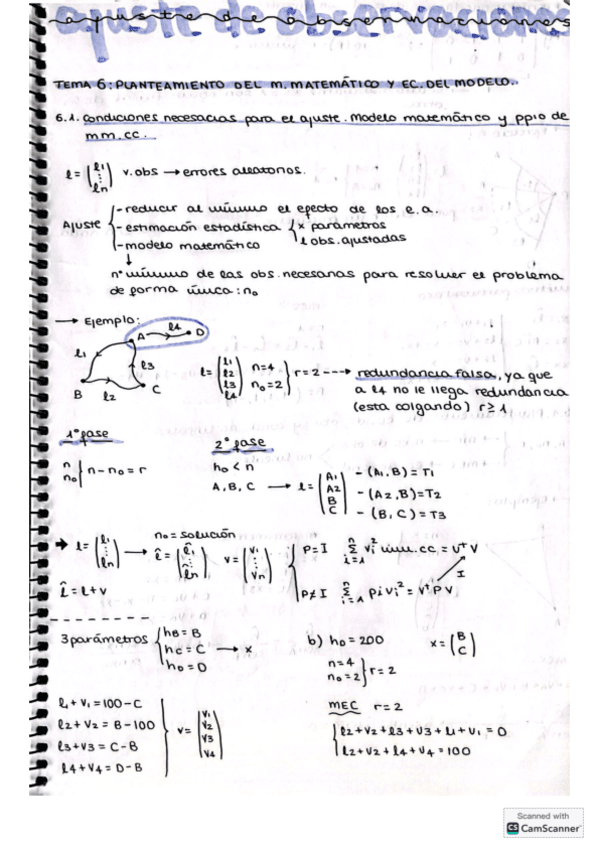 ajuste de observaciones
TEMA 6: PLANTEAMIENTO DEL M. MATEMÁTICO Y EC. DEL MODELO.
6.1. Condiciones necesarias para el ajuste. Modelo matemático y ppio de
mm.cc.
l = (l1 ⋮ ln) v. obs → errores aleatorios.
Ajuste { - reducir al mínimo el efecto de los e.a.
- estimación estadística { x parámetros
l obs. ajustadas
- modelo matemático
↓
nº mínimo de las obs. necesarias para resolver el problema
de forma única: n0
→ Ejemplo:
A l4 D
l1 l3
B l2 C
l = (l1 l2 l3 l4) n=4 n0=2 } r=2 ---→ redundancia falsa, ya que
a l4 no le llega redundancia
(esta colgando) r≥1
1º fase
n
n0 } n-n0 = r
2º fase
n0 < n
A, B, C → l = (A1 A2 B C)
- (A1, B) = T1
- (A2, B) = T2
- (B, C) = T3
→ l = (l1 ⋮ ln) → n0 = solución l̂ = (l̂1 ⋮ l̂n) v = (v1 ⋮ vn)
{ P=I Σ i=1 n vi² mín. cc. = vᵗ v
I
P≠I Σ i=1 n pi vi² = vᵗ P v
l̂ = l + v
3 parámetros { hB = B
hC = C → x
hD = D
b) hD = 200 x = (B C)
n=4
n0=2 } r=2
l1 + v1 = 100 - C
l2 + v2 = B - 100
l3 + v3 = C - B
l4 + v4 = D - B
v = (v1 v2 v3 v4)
MEC r=2
{ l2 + v2 + l3 + v3 + l1 + v1 = 0
l2 + v2 + l4 + v4 = 100
Scanned with
CS CamScanner